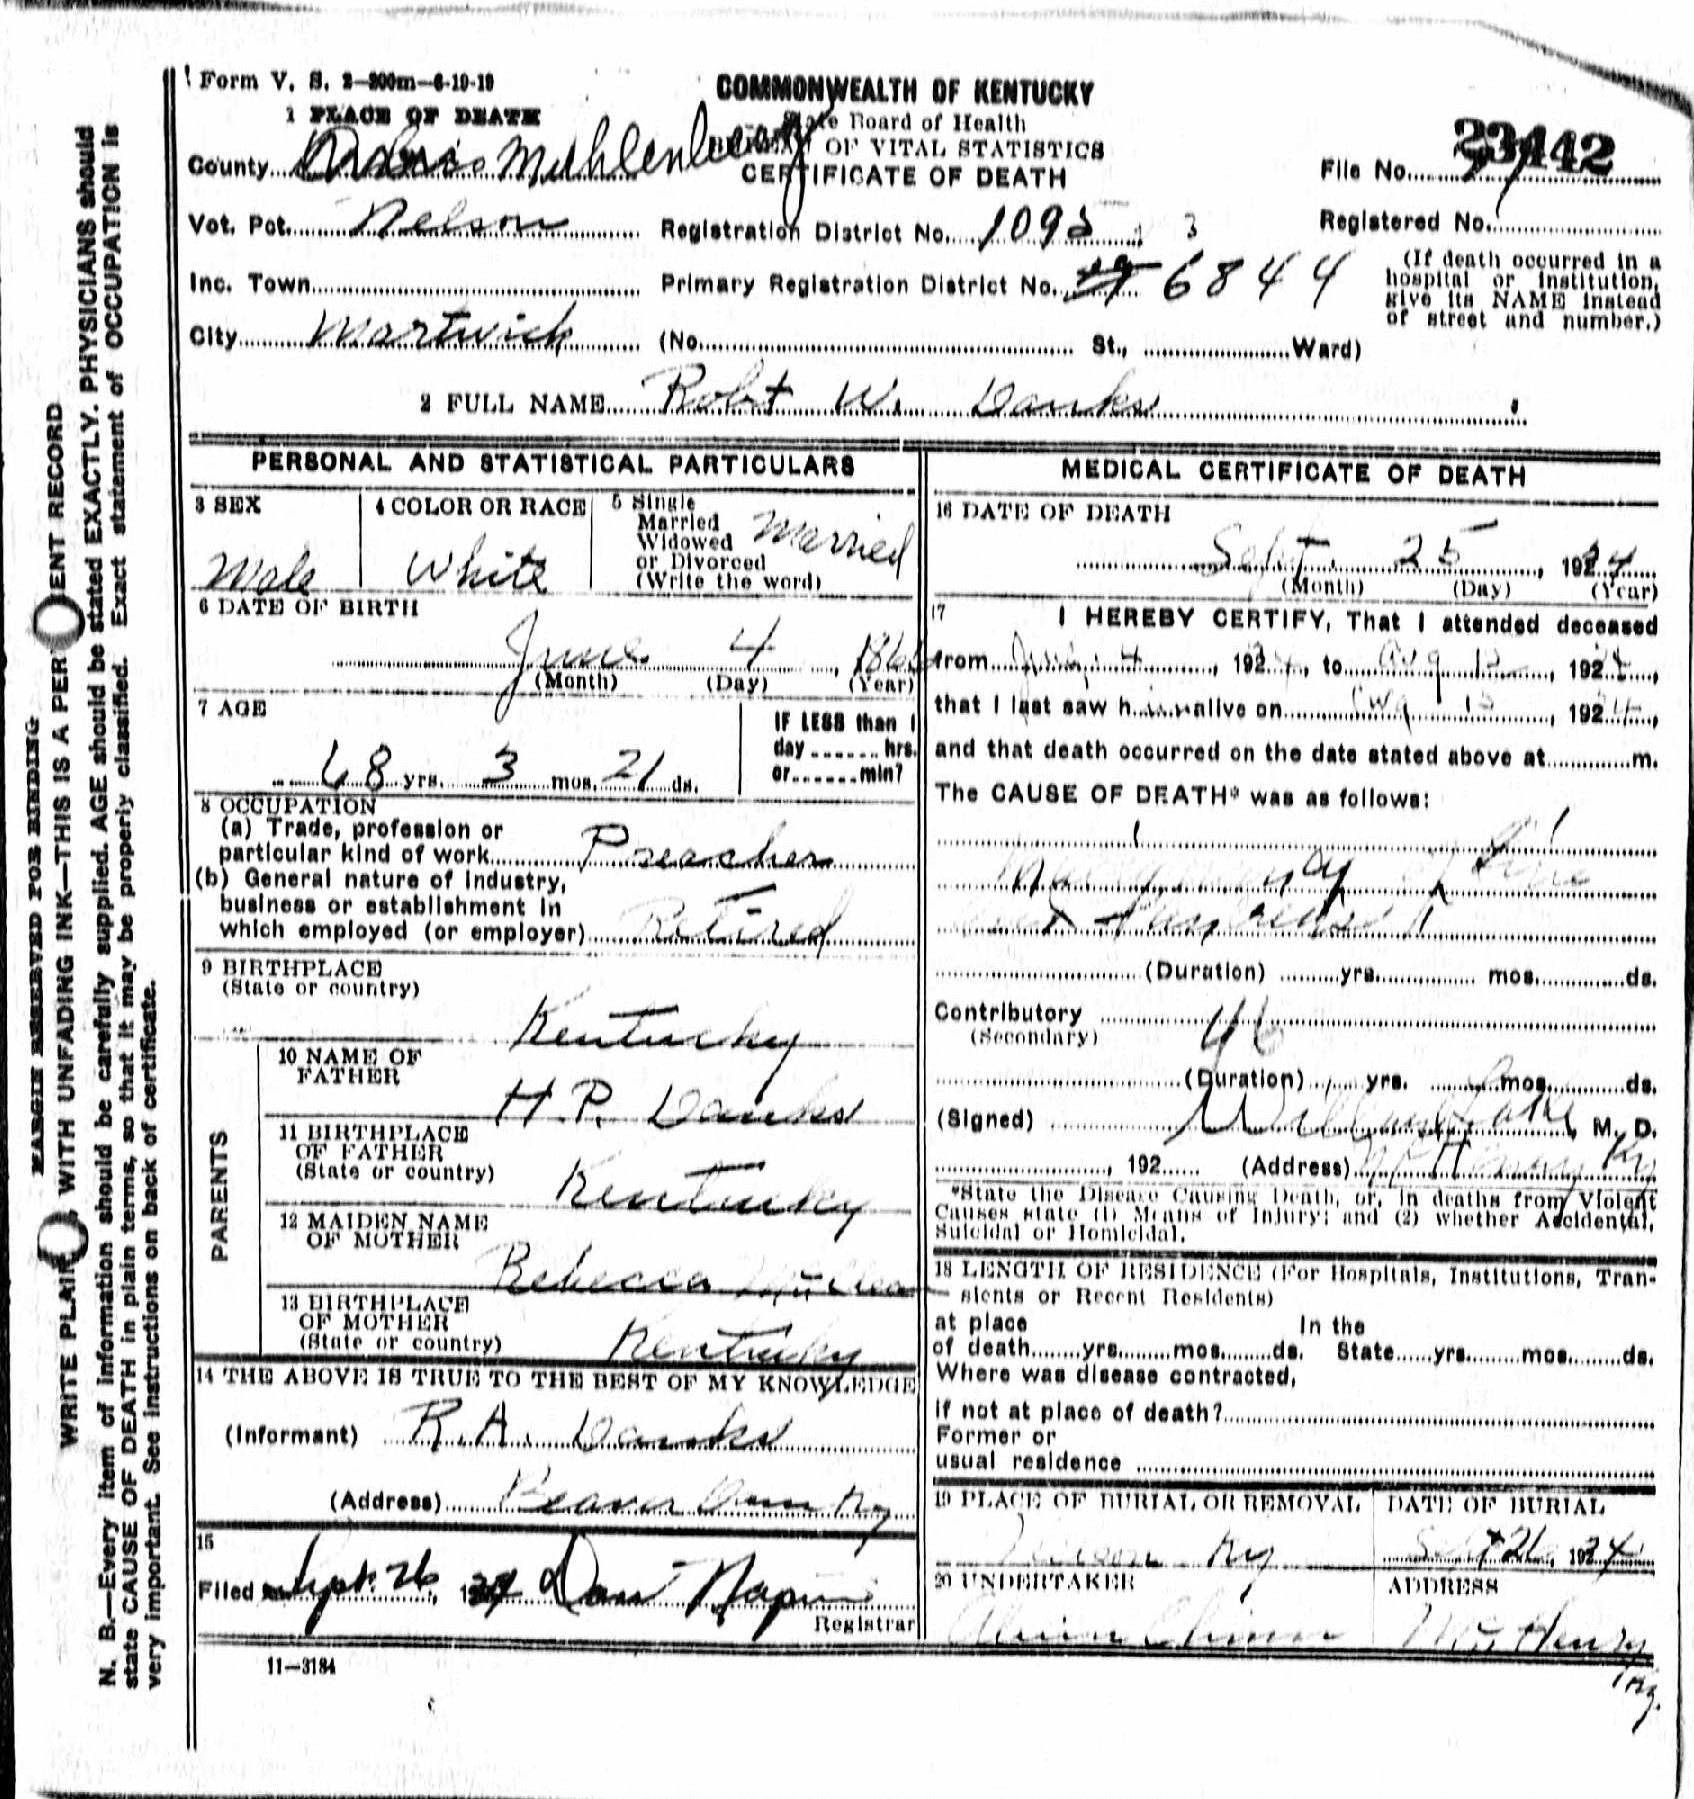 Form V. S. 2—200m—6-19-19
COMMONWEALTH OF KENTUCKY
State Board of Health
BUREAU OF VITAL STATISTICS
CERTIFICATE OF DEATH
1 PLACE OF DEATH
County Muhlenberg
File No. 23442
Vot. Pct. Nelson
Registration District No. 1095
Registered No.
Inc. Town
Primary Registration District No. 6844
(If death occurred in a hospital or institution, give its NAME instead of street and number.)
City Martwick (No. St., Ward)
2 FULL NAME Robt W. Danks
PERSONAL AND STATISTICAL PARTICULARS
3 SEX
Male
4 COLOR OR RACE
White
5 Single
Married
Widowed
or Divorced
(Write the word)
Married
6 DATE OF BIRTH
June 4, 186
(Month) (Day) (Year)
7 AGE
68 yrs. 3 mos. 21 ds.
IF LESS than 1
day hrs.
or min?
8 OCCUPATION
(a) Trade, profession or
particular kind of work Preacher
(b) General nature of industry,
business or establishment in
which employed (or employer) Retired
9 BIRTHPLACE
(State or country)
Kentucky
PARENTS
10 NAME OF
FATHER
H. P. Danks
11 BIRTHPLACE
OF FATHER
(State or country)
Kentucky
12 MAIDEN NAME
OF MOTHER
Rebecca
13 BIRTHPLACE
OF MOTHER
(State or country)
Kentucky
14 THE ABOVE IS TRUE TO THE BEST OF MY KNOWLEDGE
(Informant) R. A. Danks
(Address) Beaver Dam Ky
15
Filed Sept. 26, 1924 Dan
Registrar
11—3184
MEDICAL CERTIFICATE OF DEATH
16 DATE OF DEATH
Sept. 25, 1924
(Month) (Day) (Year)
17
I HEREBY CERTIFY, That I attended deceased
from 4, 1924, to Aug, 192
that I last saw him alive on Aug, 1924,
and that death occurred on the date stated above at m.
The CAUSE OF DEATH* was as follows:
of
(Duration) yrs. mos. ds.
Contributory 46
(Secondary)
(Duration) yrs. mos. ds.
(Signed) M. D.
, 192 (Address) McHenry Ky
*State the Disease Causing Death, or, in deaths from Violent
Causes state (1) Means of Injury; and (2) whether Accidental,
Suicidal or Homicidal.
18 LENGTH OF RESIDENCE (For Hospitals, Institutions, Tran-
sients or Recent Residents)
at place In the
of death yrs. mos. ds. State yrs. mos. ds.
Where was disease contracted,
if not at place of death?
Former or
usual residence
19 PLACE OF BURIAL OR REMOVAL
Ky
DATE OF BURIAL
Sept 26, 1924
20 UNDERTAKER
ADDRESS
McHenry
Ky.
MARGIN RESERVED FOR BINDING
WRITE PLAINLY, WITH UNFADING INK—THIS IS A PERMANENT RECORD
N. B.—Every item of information should be carefully supplied. AGE should be stated EXACTLY. PHYSICIANS should
state CAUSE OF DEATH in plain terms, so that it may be properly classified. Exact statement of OCCUPATION is
very important. See instructions on back of certificate.